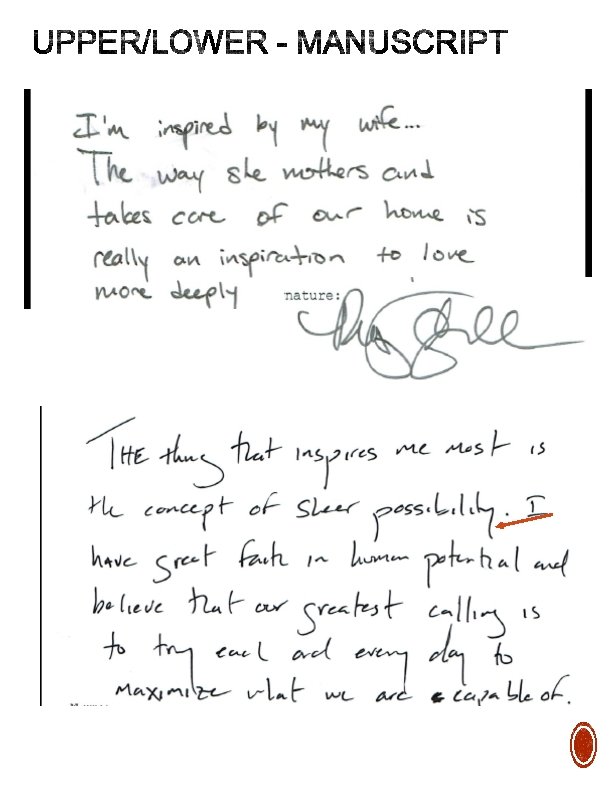 UPPER/LOWER - MANUSCRIPT
I'm inspired by my wife...
The way she mothers and
takes care of our home is
really an inspiration to love
more deeply
nature:
THE thing that inspires me most is
the concept of sheer possibility. I
have great faith in human potential and
believe that our greatest calling is
to try each and every day to
maximize what we are capable of.